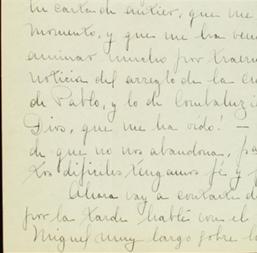 tu carta de antier, que me
momento, y que me ha ven
animar mucho por traerm
noticia del arreglo de la cu
de Pablo, y lo de Combaluzi
Dios, que me ha oído! —
de que no nos abandona, pa
los difíciles tengamos fé y f
Ahora voy a contarte d
por la tarde hablé con el
Miguel muy largo sobre lo